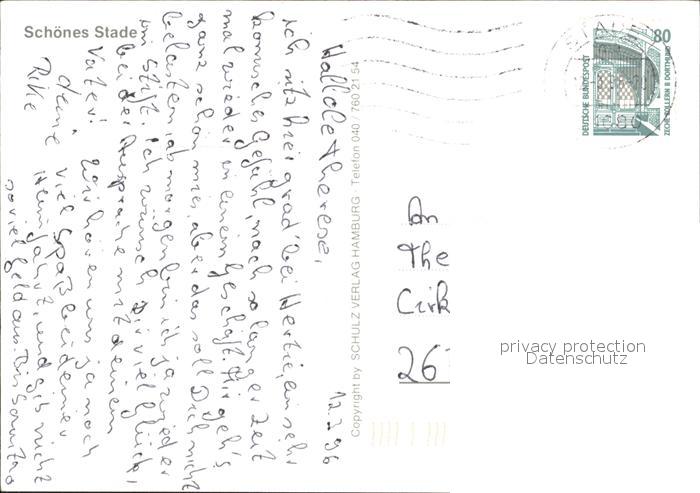 Schönes Stade
12.2.96
Hallole Therese,
ich sitz hier grad' bei Hertie, ein sehr
komisches Gefühl, nach so langer Zeit
mal wieder in einem Geschäft. Mir geht's
ganz schön mies, aber das soll Dich nicht
belasten, ab morgen bin ich ja wieder
im Stift. Ich wünsch Dir viel Glück,
bei der Aussprache mit deinem
Vater! Wir hören uns ja noch
deine
Rike
viel Spaß bei deiner
Heimfahrt, und gib nicht
soviel Geld aus. Bis Sonntag
Copyright by SCHULZ VERLAG HAMBURG · Telefon 040 / 760 21 54
80
DEUTSCHE BUNDESPOST
ZECHE ZOLLERN II DORTMUND
An
The
Cirk
26
privacy protection
Datenschutz